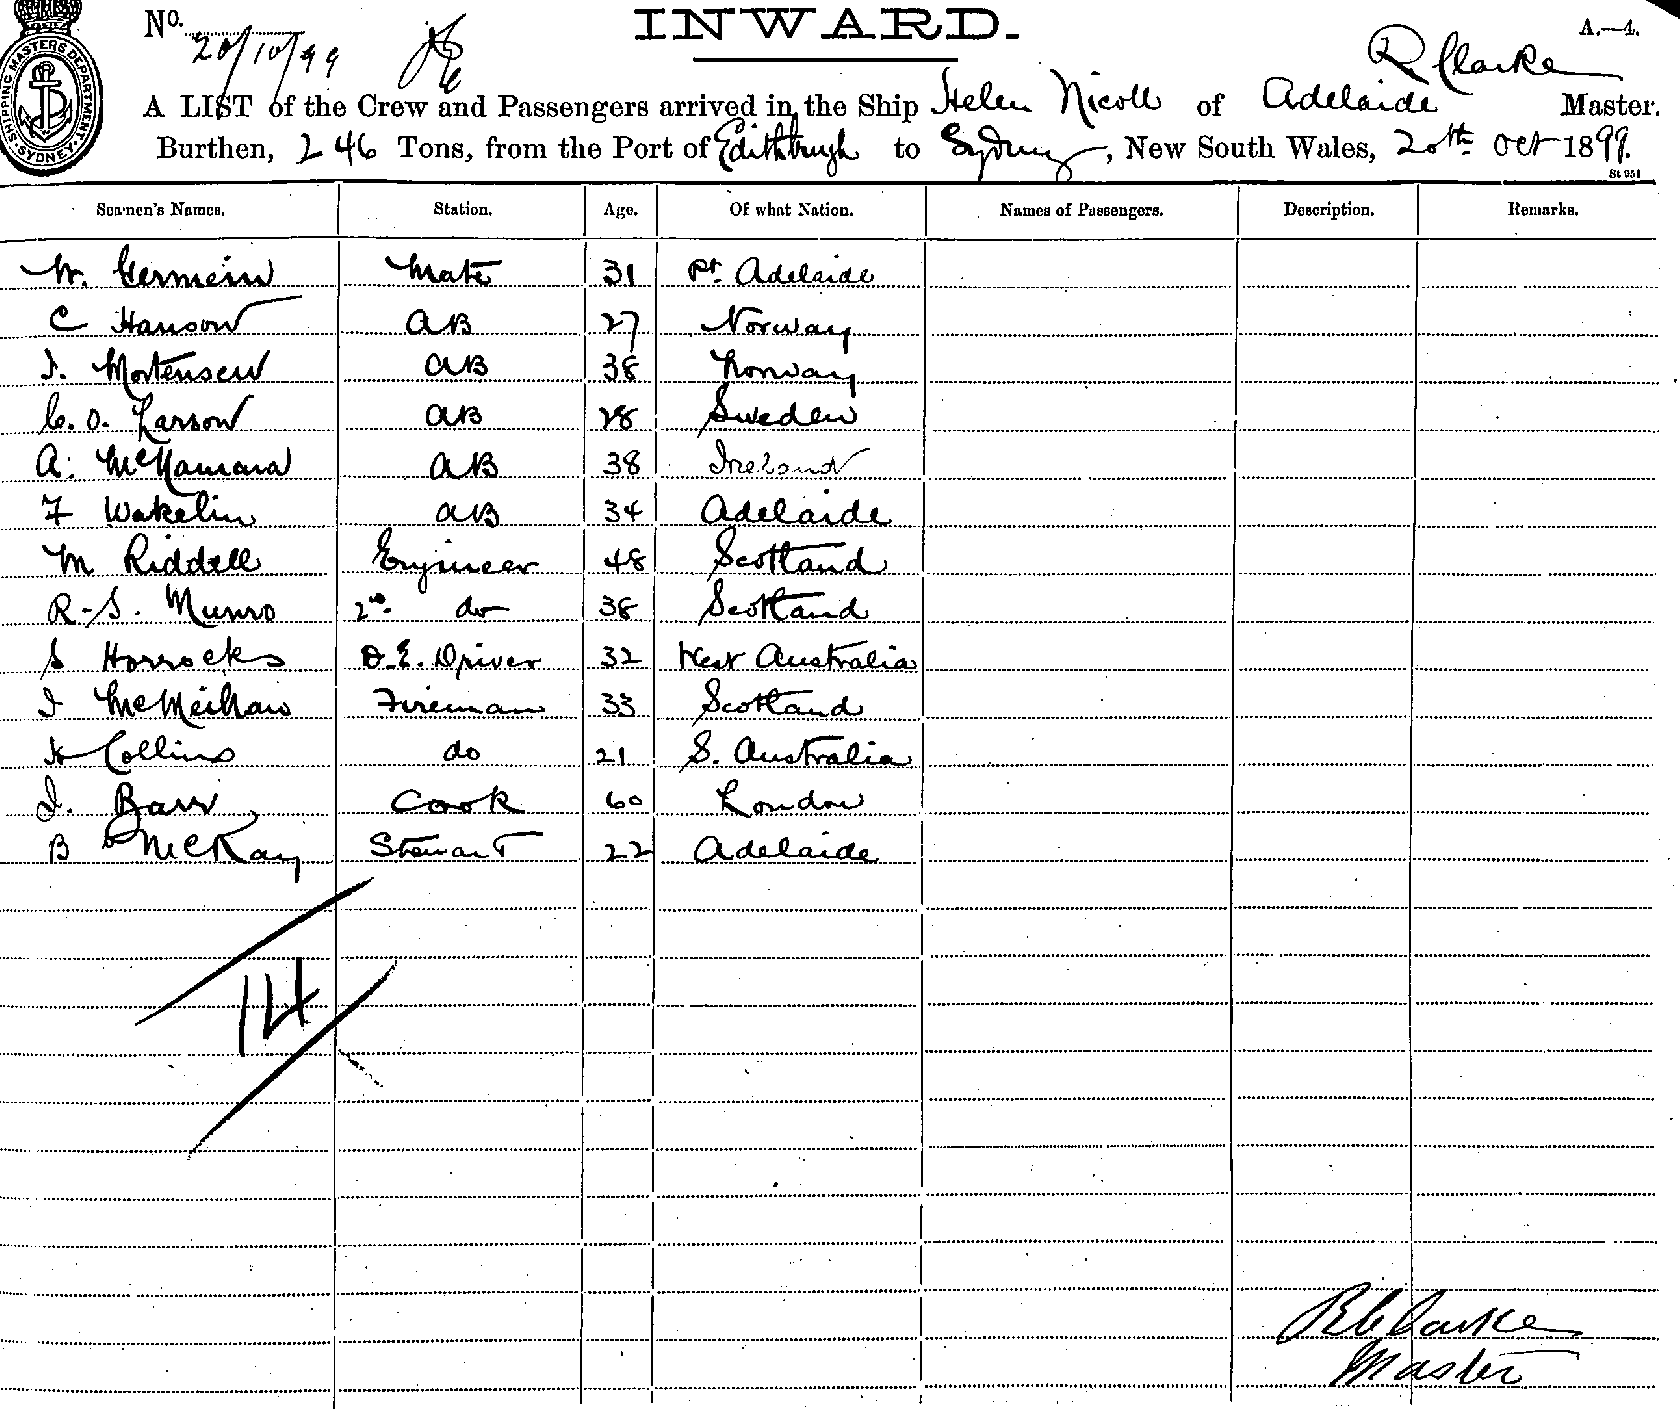 SHIPPING MASTERS DEPARTMENT SYDNEY
No. 20/10/99
INWARD.
A.—4.
R Clarke
A LIST of the Crew and Passengers arrived in the Ship Helen Nicoll of Adelaide Master.
Burthen, 246 Tons, from the Port of Edithburgh to Sydney, New South Wales, 20th Oct 1899.
St 951
Seamen's Names. Station. Age. Of what Nation. Names of Passengers. Description. Remarks.
W. Germein Mate 31 Pt. Adelaide
C Hanson AB 27 Norway
J. Mortensen AB 38 Norway
C. O. Larson AB 28 Sweden
A. McNamara AB 38 Ireland
F Wakelin AB 34 Adelaide
M Riddell Engineer 48 Scotland
R. S. Munro 2nd. do 38 Scotland
S Horrocks D.E. Driver 32 West Australia
J Fireman 33 Scotland
H Collins do 21 S. Australia
J. Barr Cook 60 London
B McKay Stewart 22 Adelaide
14
R Clarke
Master